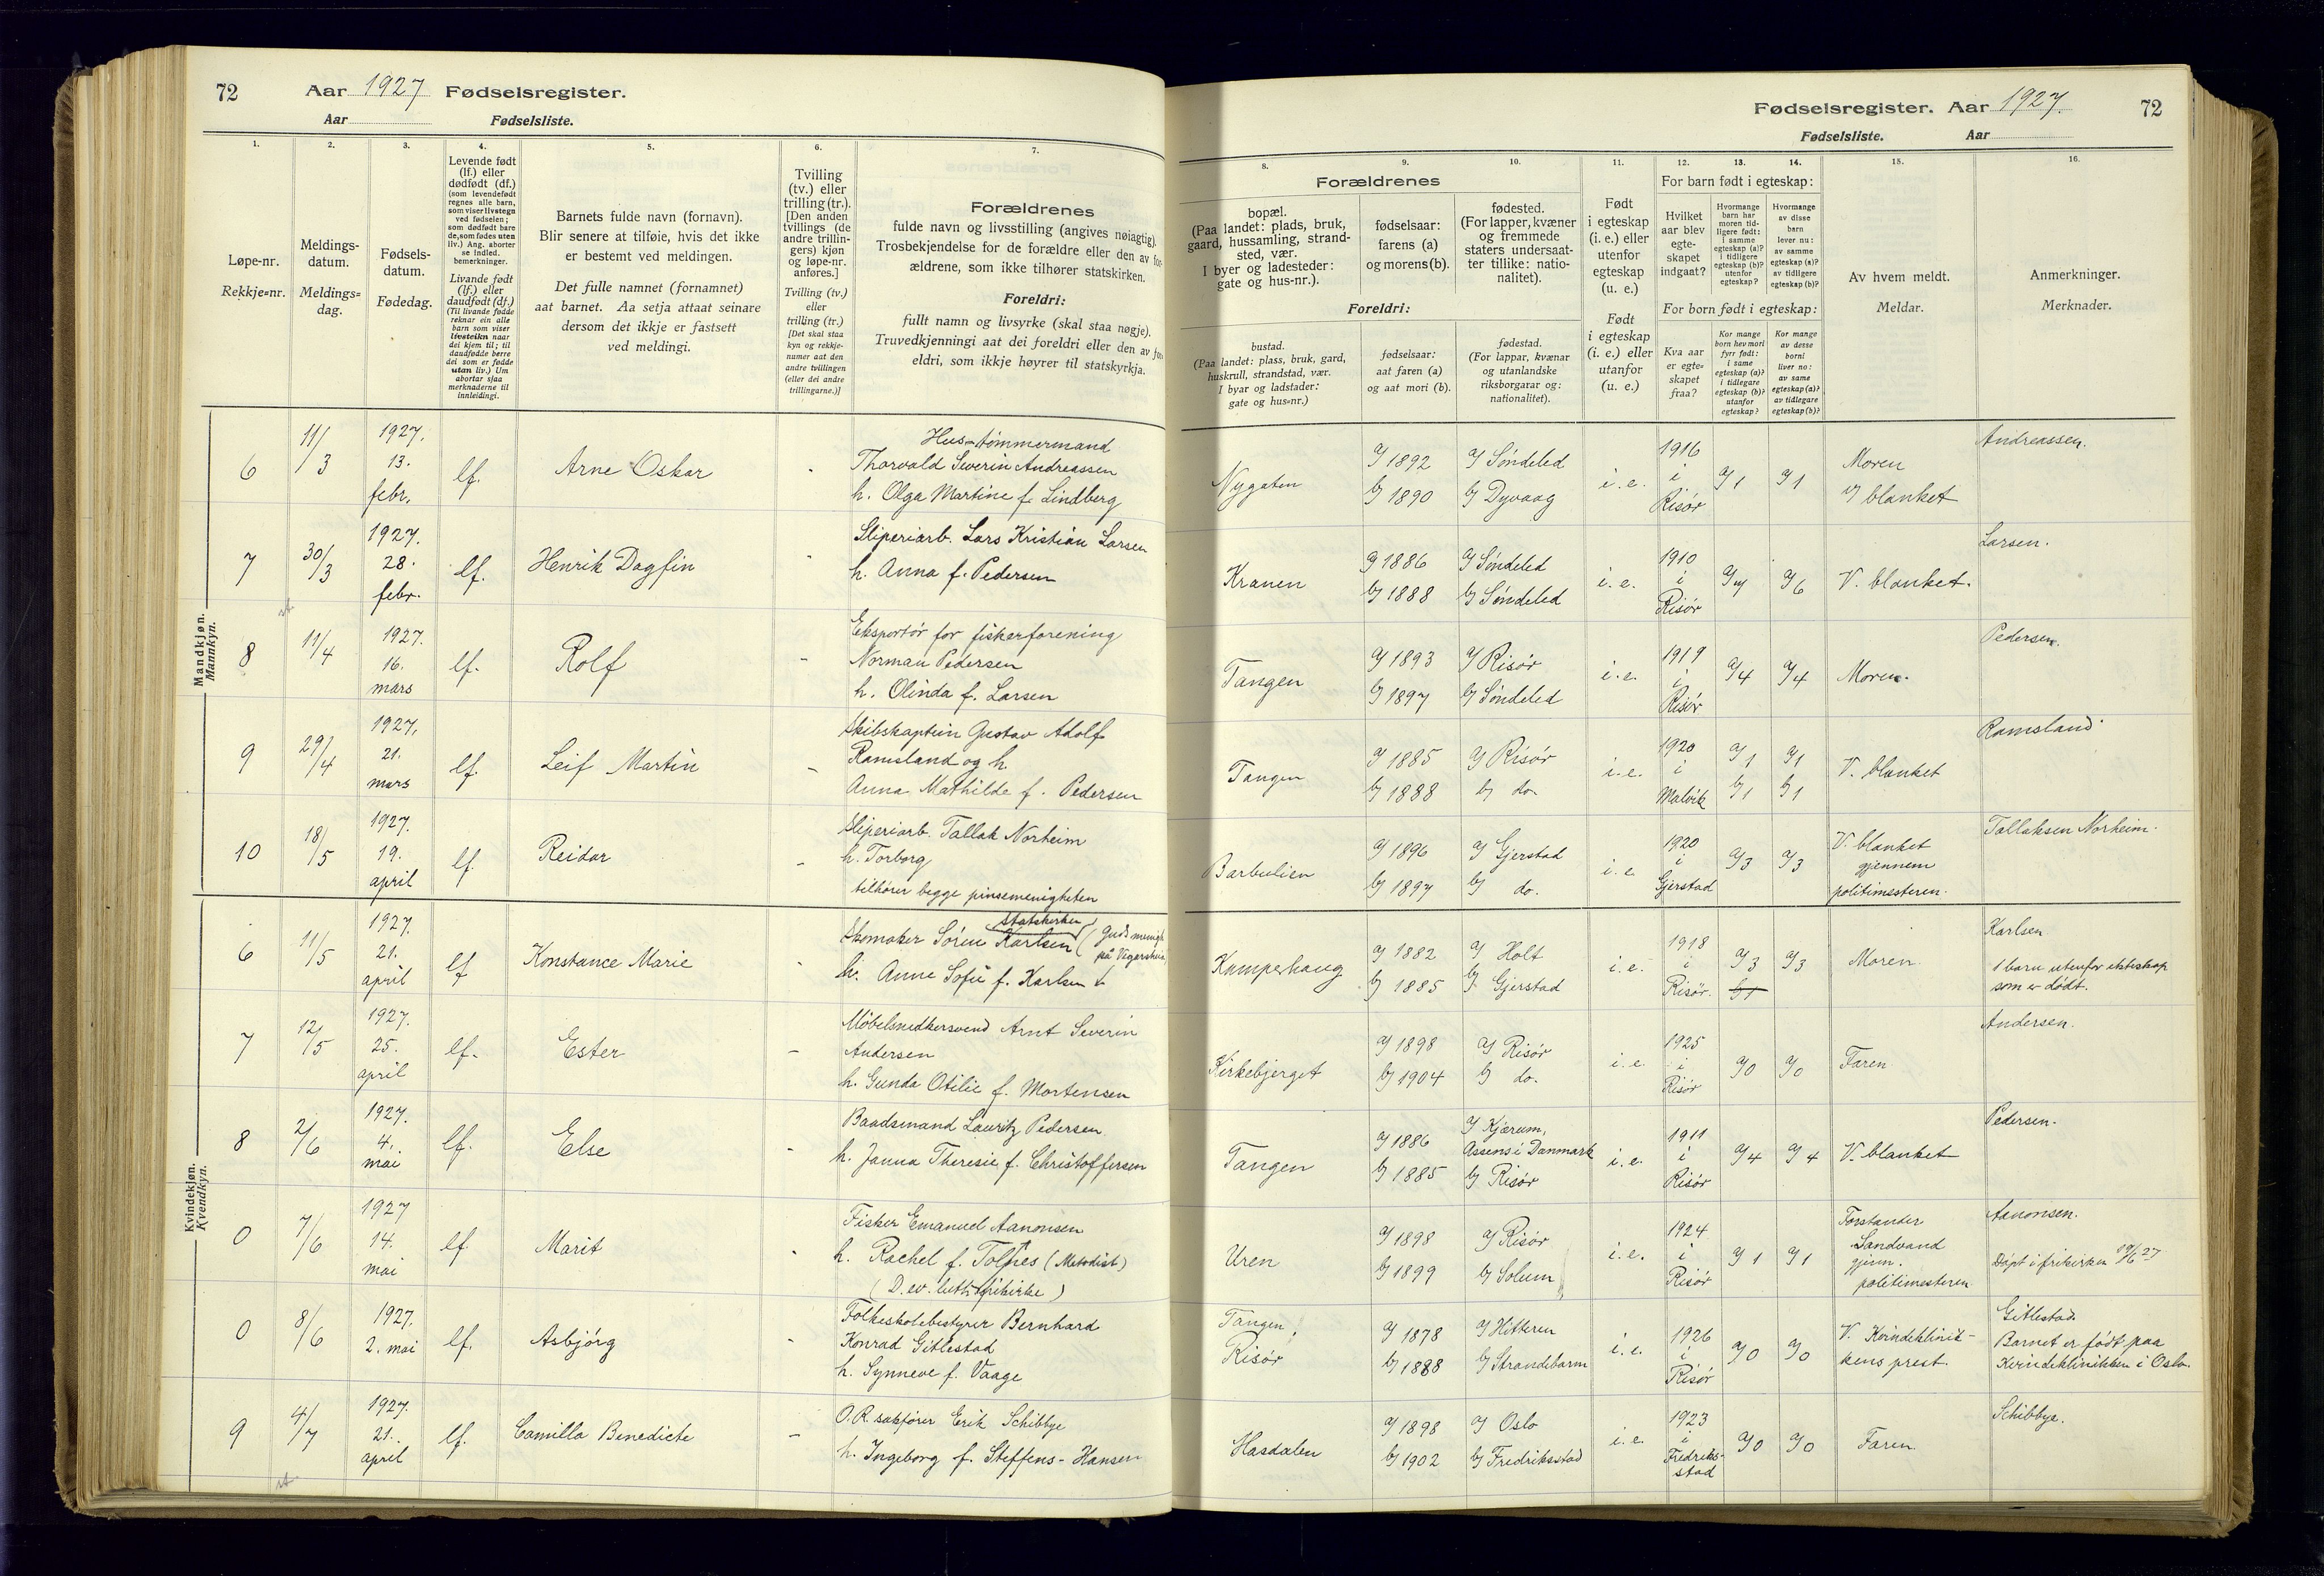 72 Aar 1927 Fødselsregister.
Aar Fødselsliste.
1.
Løpe-nr.
Rekkje=nr.
2.
Meldings-
datum.
Meldings=
dag.
3.
Fødsels-
datum.
Fødedag.
4.
Levende født
(lf.) eller
dødfødt (df.)
(som levendefødt
regnes alle barn,
som viser livstegn
ved fødselen;
som dødfødt bare
de, som fødes uten
liv.) Ang. aborter
se indled.
bemerkninger.
Livande født
(lf.) eller
daudfødt (df.)
(Til livande fødde
reknar ein alle
barn som viser
livsteikn naar
dei kjem til; til
daudfødde berre
dei som er fødde
utan liv.) Um
abortar sjaa
merknaderne til
innleidingi.
5.
Barnets fulde navn (fornavn).
Blir senere at tilføie, hvis det ikke
er bestemt ved meldingen.
Det fulle namnet (fornamnet)
aat barnet. Aa setja attaat seinare
dersom det ikkje er fastsett
ved meldingi.
6.
Tvilling
(tv.) eller
trilling (tr.).
[Den anden
tvillings (de
andre trillin-
gers) kjøn
og løpe-nr.
anføres.]
Tvilling (tv.)
eller
trilling (tr.)
[Det skal staa
kyn og rekkje-
numer aat den
andre tvillingen
(eller dei andre
trillingarne.)]
7.
Forældrenes
fulde navn og livsstilling (angives nøiagtig).
Trosbekjendelse for de forældre eller den av for-
ældrene, som ikke tilhører statskirken.
Foreldri:
fullt namn og livsyrke (skal staa nøgje).
Truvedkjenningi aat dei foreldri eller den av for
eldri, som ikkje høyrer til statskyrkja.
Mandkjøn.
Mannkyn.
6 11/3 1927. 13. febr. lf. Arne Oskar -
Hus-tømmermand
Thorvald Severin Andreassen
h. Olga Martine f. Lindberg
7 30/3 1927. 28. febr. lf. Henrik Dagfin -
Sliperiarb. Lars Kristian Larsen
h. Anna f. Pedersen
8 11/4 1927. 16. mars lf. Rolf -
Eksportør for fiskerforening
Norman Pedersen
h. Olinda f. Larsen
9 29/4 1927. 21. mars lf. Leif Martin -
Skibskaptein Gustav Adolf
Ramsland og h.
Anna Mathilde f. Pedersen
10 18/5 1927. 19. april lf. Reidar -
Sliperiarb. Tallak Norheim
h. Torborg
tilhører begge pinsemenigheten
Kvindekjøn.
Kvendkyn.
6 11/5 1927. 21. april lf Konstance Marie -
statskirken
Skomaker Søren Karlsen (Guds menigh
h. Anne Sofie f. Karlsen
7 12/5 1927. 25. april lf. Ester -
Møbelsnedkersvend Arnt Severin
Andersen
h. Gunda Otilie f. Mortensen
8 2/6 1927. 4. mai lf. Else -
Baadsmand Lauritz Pedersen
h. Janna Theresie f. Christoffersen
0 7/6 1927 14. mai lf. Marit -
Fisker Emanuel Aanonsen
h. Rachel f. Tolnes (Metodist)
(D. ev. luth. frikirke)
0 8/6 1927. 2. mai lf. Asbjörg -
Folkeskolebestyrer Bernhard
Konrad Gitlestad
h. Synneve f. Vaage
9 4/7 1927. 21. april lf. Camilla Benedicte -
O.R. sakfører Erik Schibbye
h. Ingeborg f. Steffens-Hansen
Fødselsregister. Aar 1927. 72
Fødselsliste. Aar
8.
Forældrenes
bopæl.
(Paa landet: plads, bruk,
gaard, hussamling, strand-
sted, vær.
I byer og ladesteder:
gate og hus-nr.).
Foreldri:
bustad.
(Paa landet: plass, bruk, gard,
huskrull, strandstad, vær.
I byar og ladstader:
gate og hus=nr.)
9.
fødselsaar:
farens (a)
og morens (b).
fødselsaar:
aat faren (a)
og aat mori (b).
10.
fødested.
(For lapper, kvæner
og fremmede
staters undersaat-
ter tillike: natio-
nalitet).
fødestad.
(For lappar, kvænar
og utanlandske
riksborgarar og:
nationalitet).
11.
Født
i egteskap
(i. e.) eller
utenfor
egteskap
(u. e.)
Født
i egteskap
(i. e.) eller
utanfor
egteskap
(u. e.)
12. 13. 14.
For barn født i egteskap:
Hvilket
aar blev
egte-
skapet
indgaat?
Hvormange
barn har
moren tid-
ligere født:
i samme
egteskap (a)?
i tidligere
egteskap (b)?
utenfor
egteskap?
Hvormange
av disse
barn
lever nu:
av samme
egteskap (a)?
av tidligere
egteskap (b)?
For born født i egteskap:
Kva aar
er egte=
skapet
fraa?
Kor mange
born hev mori
fyrr født:
i same
egteskap (a)?
i tidlegare
egteskap (b)?
utanfor
egteskap?
Kor mange
av desse
borni
liver no:
av same
egteskap (a)?
av tidlegare
egteskap (b)?
15.
Av hvem meldt.
Meldar.
16.
Anmerkninger.
Merknader.
Nygaten a) 1892 b) 1890 a) Søndeled b) Dyvaag i.e. 1916 i Risør a) 1 a) 1 Moren blanket Andreassen.
Kranen a) 1886 b) 1888 a) Søndeled b) Søndeled i.e. 1910 i Risør a) 7 a) 6 V. blanket. Larsen.
Tangen a) 1893 b) 1897 a) Risør b) Søndeled i.e. 1919 i Risør a) 4 a) 4 Moren. Pedersen.
Tangen a) 1885 b) 1888 a) Risør b) do. i.e. 1920 i Malvik a) 1 b) 1 a) 1 b) 1 V. blanket Ramsland
Barbulien a) 1896 b) 1897 a) Gjerstad b) do. i.e 1920 i Gjerstad a) 3 a) 3 V. blanket gjennem politimesteren. Tallaksen Norheim.
Kamperhaug a) 1882 b) 1885 a) Holt b) Gjerstad i.e. 1918 i Risør. a) 3 b) 1 a) 3 Moren. Karlsen.
1 barn utenfor ekteskap
som er dødt.
Kirkebjerget a) 1898 b) 1904 a) Risør b) do. i.e. 1925 i Risør a) 0 a) 0 Faren Andersen.
Tangen a) 1886 b) 1885 a) Kjærum, Assens i Danmark b) Risør i.e. 1911 i Risør a) 4 a) 4 V. blanket Pedersen.
Uren a) 1898 b) 1899 a) Risør b) Solum i.e. 1924 i Risør a) 1 a) 1 Forstander Sandvand gjenn. politimesteren Aanonsen.
Døpt i frikirken
Tangen, Risør a) 1878 b) 1888 a) Hitteren b) Strandebarm i.e. 1926 i Risør a) 0 a) 0 V. Kvindeklinik- kens prest. Gitlestad.
Barnet er født paa
Kvindeklinikken i Oslo.
Hasdalen a) 1898 b) 1902 a) Oslo b) Fredriksstad i.e. 1923 i Fredriks- stad a) 0 a) 0 Faren. Schibbye.